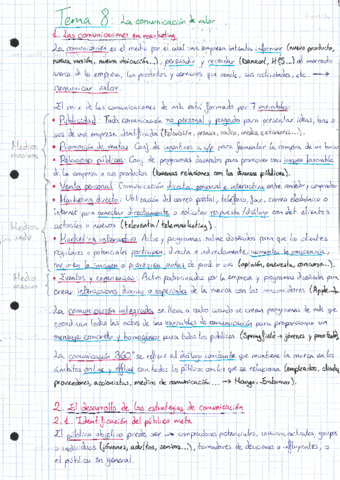 Tema 8. La comunicación de valor
1. Las comunicaciones en marketing
La comunicación es el medio por el cual una empresa intenta informar (nuevo producto,
nueva versión, nueva ubicación...), persuadir y recordar (Danacol, H&S...) al mercado
acerca de la empresa, los productos y servicios que vende, sus actividades, etc. →
comunicar valor
El mix de las comunicaciones de mk está formado por 7 variables:
• Publicidad: Toda comunicación no personal y pagada para presentar ideas, bienes
o servs de una empresa identificada (televisión, prensa, radio, medios exteriores...).
• Promoción de ventas: Conj. de incentivos a c/p para fomentar la compra de un
• Relaciones públicas: Conj. de programas diseñados para promover una imagen favorable
de la empresa o sus productos (buenas relaciones con los diversos públicos).
Medios masivos
• Venta personal: Comunicación directa, personal e interactiva entre vendedor y comprador
• Marketing directo: Utilización del correo postal, teléfono, fax, correo electrónico o
internet para conectar directamente o solicitar respuesta/diálogo con det. clientes
actuales o nuevos (televenta/telemarketing).
Medios
• Marketing interactivo: Activ. y programas online diseñados para que los clientes
regulares o potenciales participen, directa o indirectamente, aumente la conciencia,
mejore la imagen o provoquen ventas de prod. o serv. (opinión, encuesta, concurso...).
• Eventos y experiencias: Activ. patrocinadas por la empresa y programas diseñados para
crear interacciones diarias o especiales de la marca con los consumidores (Apple →
Medios
La comunicación integrada se lleva a cabo cuando se crean programas de mk que
coordinan todas las activs de las variables de comunicación para proporcionar un
mensaje concreto y homogéneo para todos los públicos (Springfield → jóvenes y
La comunicación 360° se refiere al diálogo constante que mantiene la marca en los
ámbitos online y offline con todos los públicos con los que se relaciona (empleados, clientes,
proveedores, accionistas, medios de comunicación... → Mango,
2. El desarrollo de las estrategias de comunicación
2.1. Identificación del público meta
El público objetivo puede ser → compradores potenciales, usuarios actuales, grupos
o individuos (jóvenes, adultos, seniors...), tomadores de decisiones o influyentes, o
el público en general.